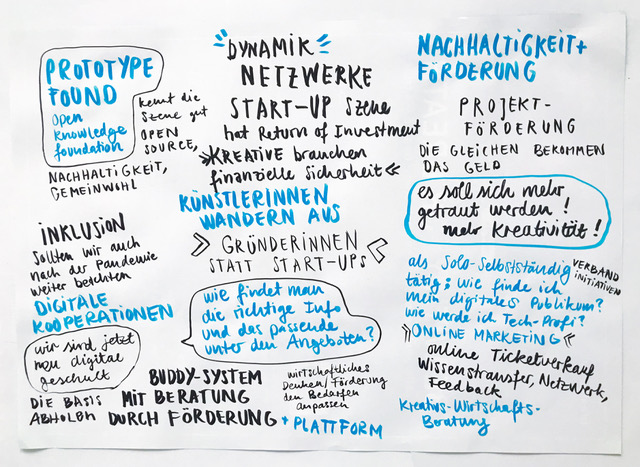 PROTOTYPE
FOUND
Open
Knowledge
foundation
kennt die
Szene gut
OPEN
SOURCE,
NACHHALTIGKEIT,
GEMEINWOHL
INKLUSION
Sollten wir auch
nach der Pandemie
weiter berichten
DIGITALE
KOOPERATIONEN
wir sind jetzt
neu digital
geschult
DIE BASIS
ABHOLEN
DYNAMIK
NETZWERKE
START-UP Szene
hat Return of Investment
»KREATIVE brauchen
finanzielle Sicherheit«
KÜNSTLERINNEN
WANDERN AUS
» GRÜNDERINNEN «
STATT START-UPS
wie findet man
die richtige Info
und das passende
unter den Angeboten?
BUDDY-SYSTEM
MIT BERATUNG
DURCH FÖRDERUNG
+ PLATTFORM
wirtschaftliches
Denken/Förderung
den Bedarfen
anpassen
NACHHALTIGKEIT+
FÖRDERUNG
PROJEKT-
FÖRDERUNG
DIE GLEICHEN BEKOMMEN
DAS GELD
es soll sich mehr
getraut werden!
mehr Kreativität!
als Solo-Selbstständig
tätig; wie finde ich
mein digitales Publikum?
wie werde ich Tech-Profi?
VERBAND
INITIATIVEN
»ONLINE MARKETING«
online Ticketverkauf
Wissenstransfer, Netzwerk,
Feedback
Kreativ-Wirtschafts-
Beratung